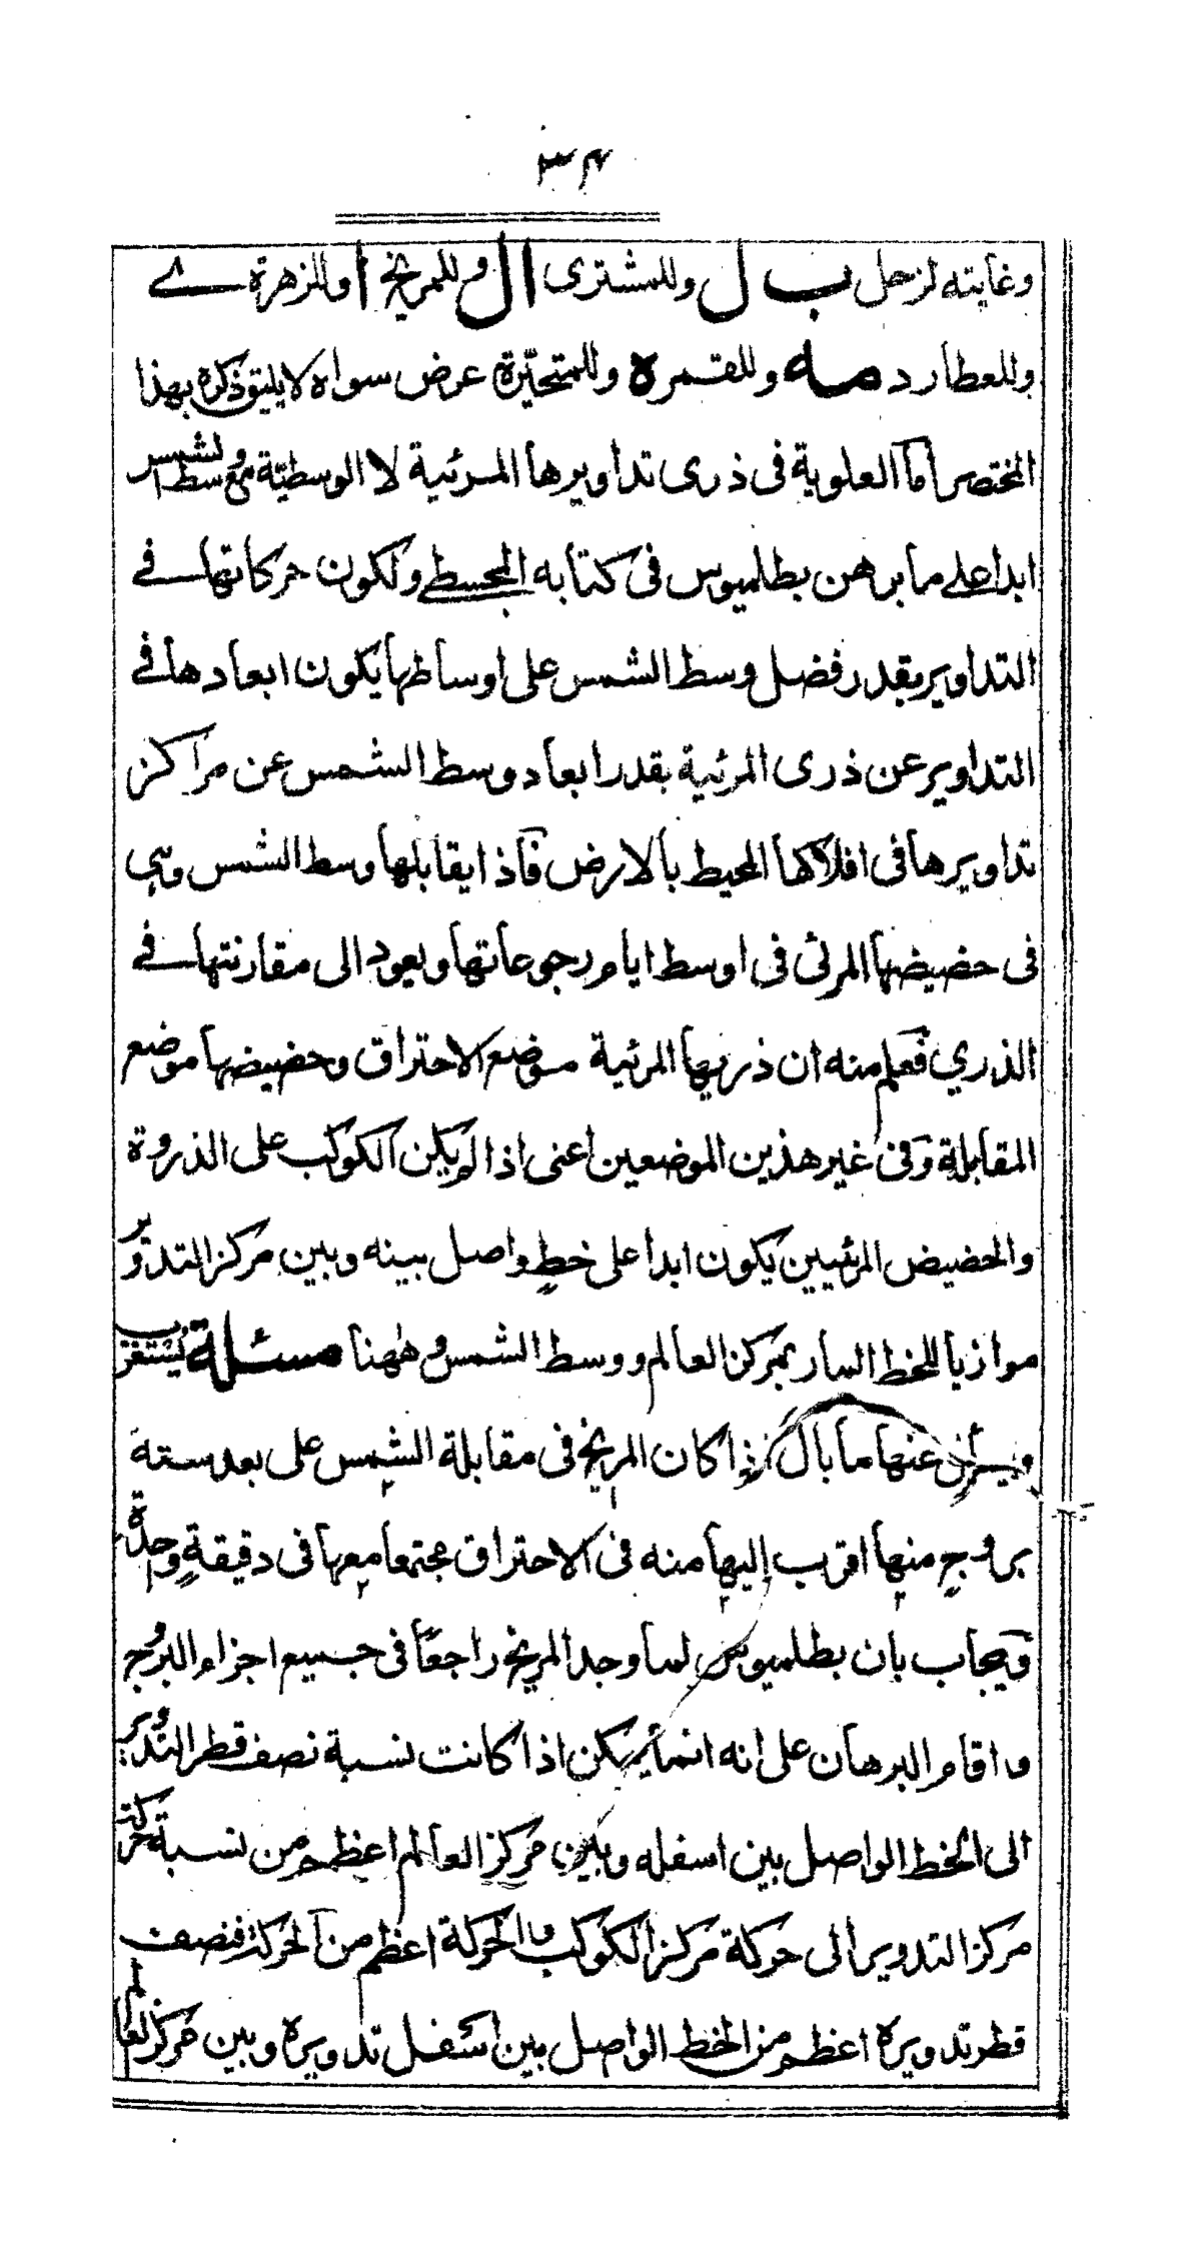 ٣٤
وغايته لزحل ب ل وللمشترى ا ل وللمريخ ا وللزهرة ے
وللعطارد مه وللقمر ه وللمتحيّرة عرض سواه لا يليق ذكره بهذا
المختصر اما العلوية فى ذرى تداويرها المرئية لا الوسطيّة مع وسط الشمس
ابدا على ما برهن بطلميوس فى كتابه المجسطے ولكون حركاتها فے
التداوير بقدر فضل وسط الشمس على اوساطها يكون ابعادها فے
التداوير عن ذرى المرئية بقدر ابعاد وسط الشمس عن مراكز
تداويرها فى افلاكها المحيط بالارض فاذا يقابلها وسط الشمس وهى
فى حضيضها المرئى فى اوسط ايام رجوعاتها ويعود الى مقارنتها فے
الذرى فعلم منه ان ذريها المرئية موضع الاحتراق وحضيضها موضع
المقابلة وفى غير هذين الموضعين اعنى اذا لم يكن الكوكب على الذروة
والحضيض المرئيين يكون ابدا على خطٍ واصل بينه وبين مركز التدوير
موازيا للخط المار بمركز العالم ووسط الشمس وههنا مسئلة يستغرب
ويسأل عنها ما بال اذا كان المريخ فى مقابلة الشمس على بعد ستة
بروجٍ منها اقرب إليها منه فى الاحتراق مجتمعا معها فى دقيقةٍ واحدة
فيجاب بان بطلميوس لما وجد المريخ راجعًا فى جميع اجزاء البروج
واقام البرهان على انه انما يمكن اذا كانت نسبة نصف قطر التدوير
الى الخط الواصل بين اسفله وبين مركز العالم اعظم من نسبة حركة
مركز التدوير الى حركة مركز الكوكب والحركة اعظم من الحركة فنصف
قطر تدويره اعظم من الخط الواصل بين اسفل تدويره وبين مركز العالم